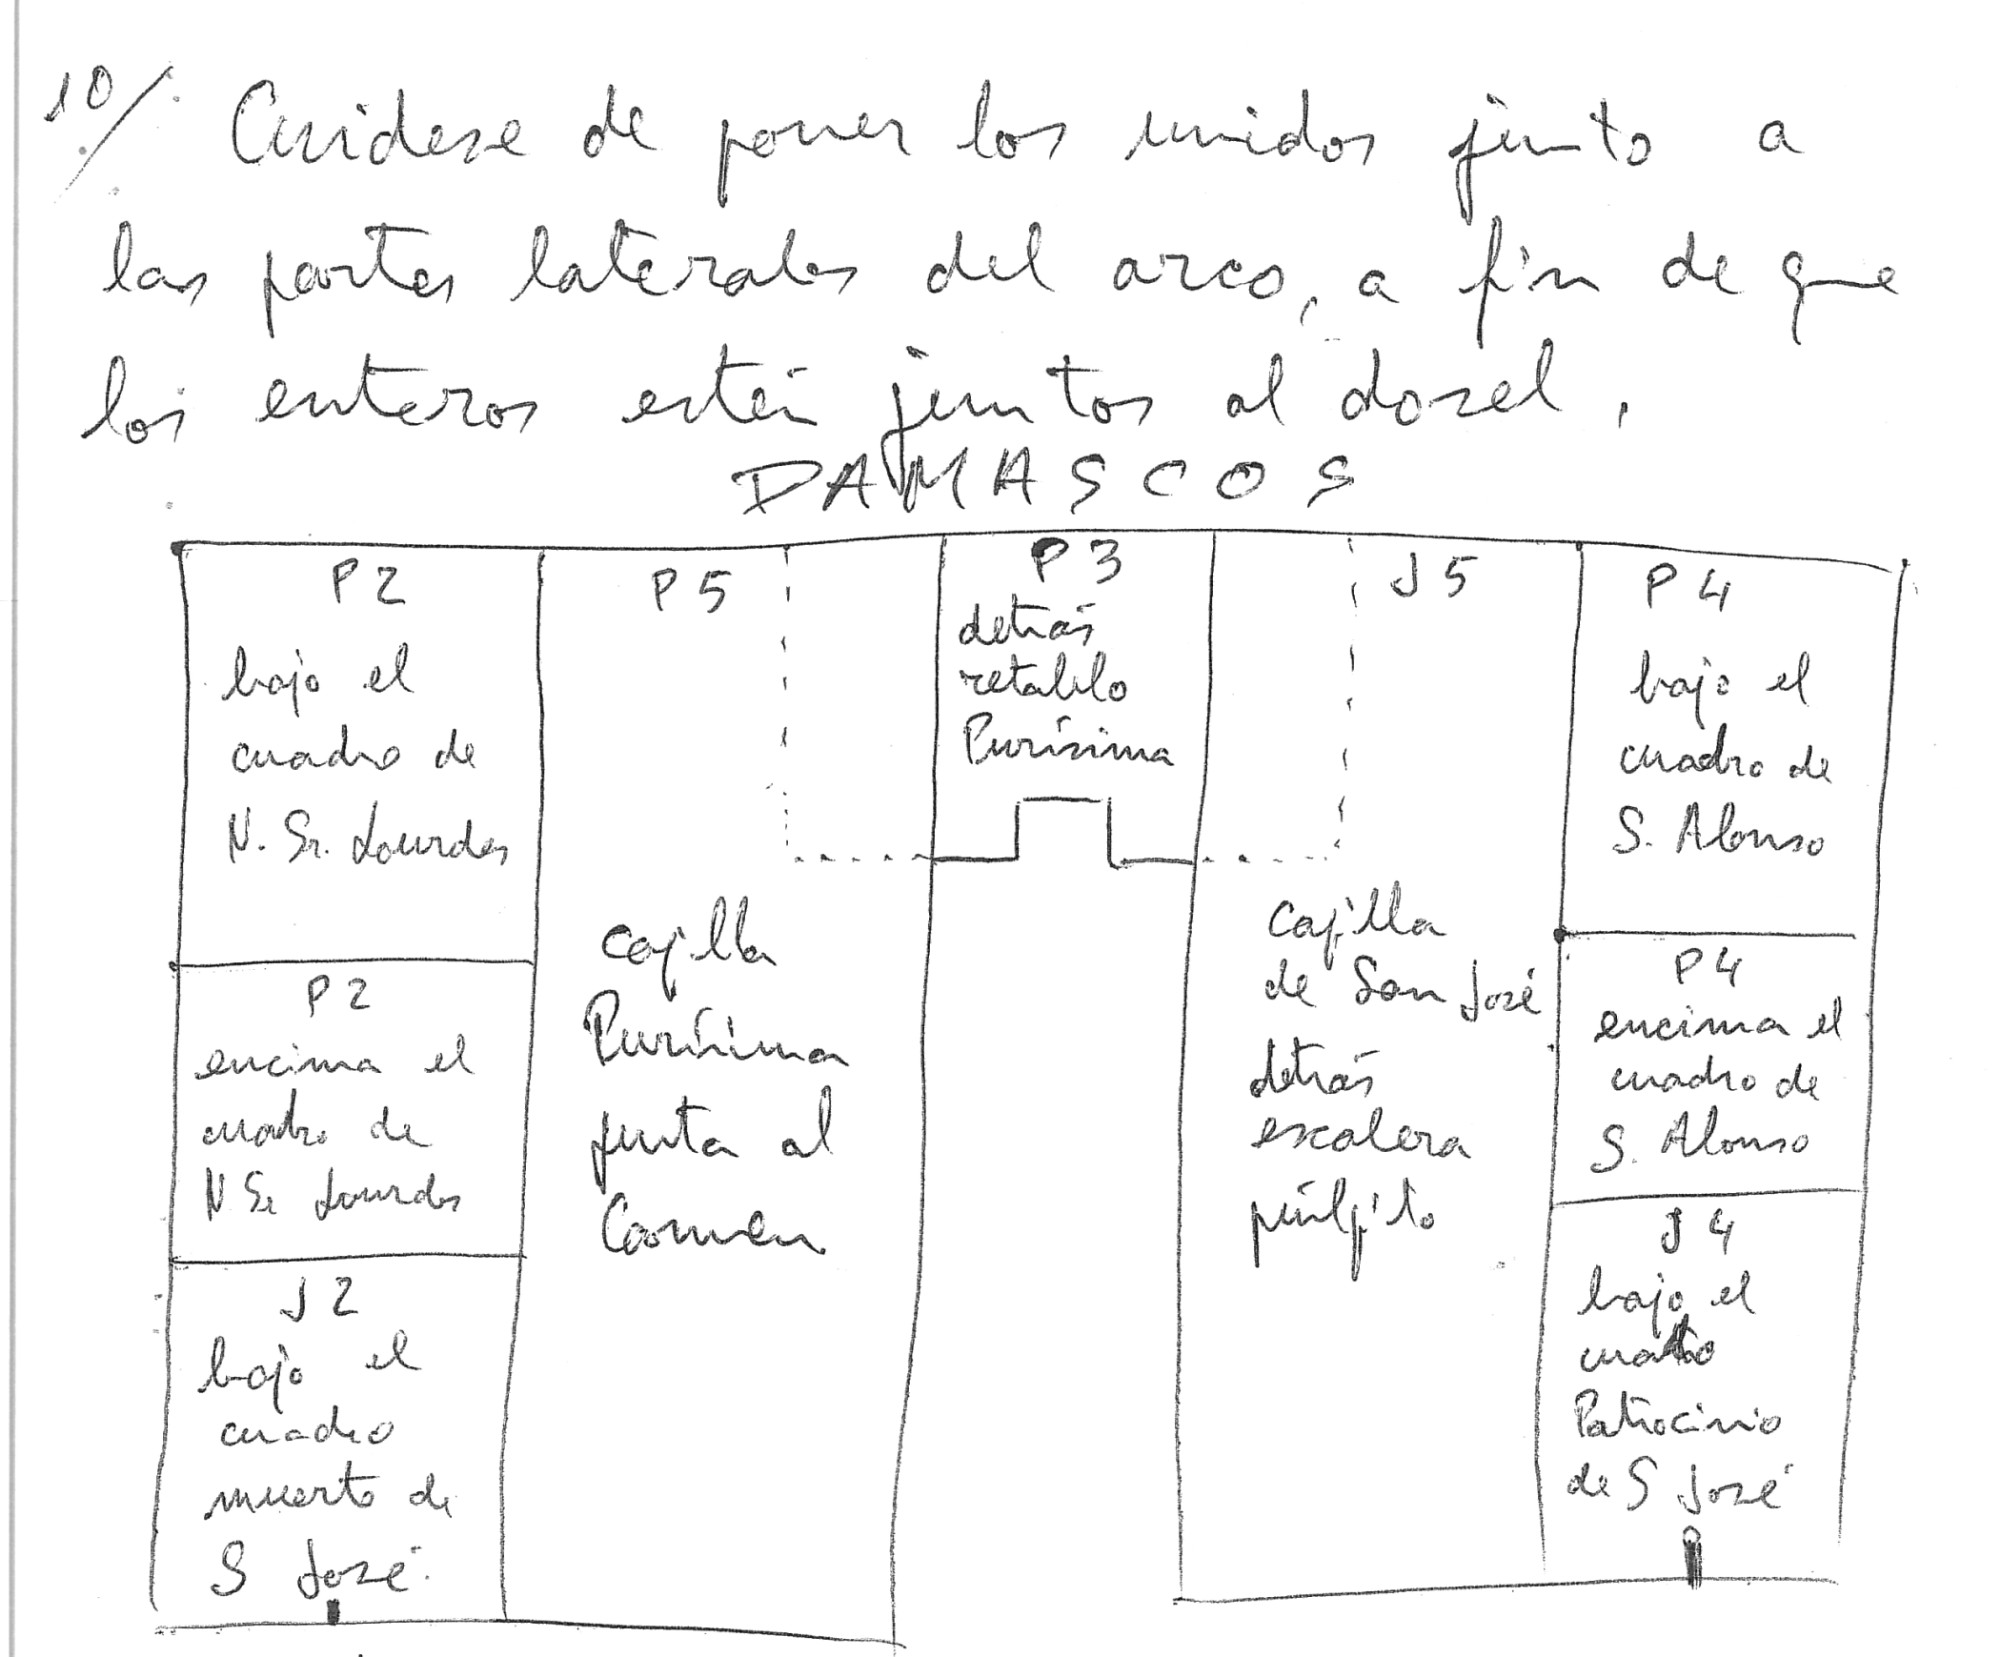 10/ Cuidese de poner los unidos junto a
las partes laterales del arco, a fin de que
los enteros estén juntos al dosel.
DAMASCOS
P2
bajo el
cuadro de
N. Sr. Lourdes
P2
encima el
cuadro de
N Sr Lourdes
J2
bajo el
cuadro
muerte de
S José.
P5
capilla
Purísima
junta al
Carmen
P3
detrás
retablo
Purísima
J5
capilla
de San José
detrás
escalera
púlpito
P4
bajo el
cuadro de
S. Alonso
P4
encima el
cuadro de
S. Alonso
J4
bajo el
cuadro
Patrocinio
de S José